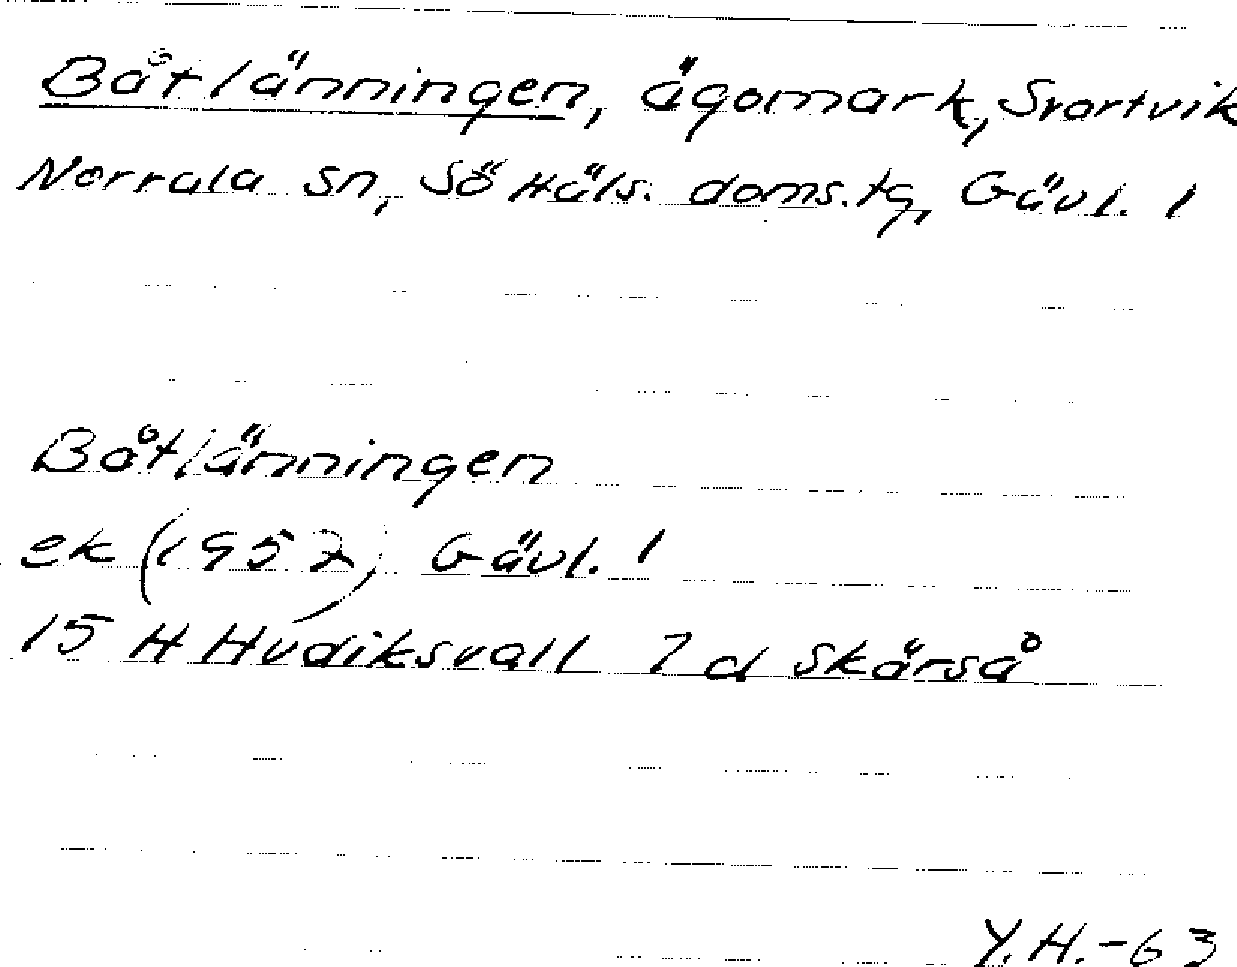 Båtlänningen, ägomark, Svartvik
Norrala sn, Sö Häls. doms.tg, Gävl. l
Båtlänningen
ek (1957) Gävl. l
15 H Hudiksvall 7 d Skärså
Y.H.-63